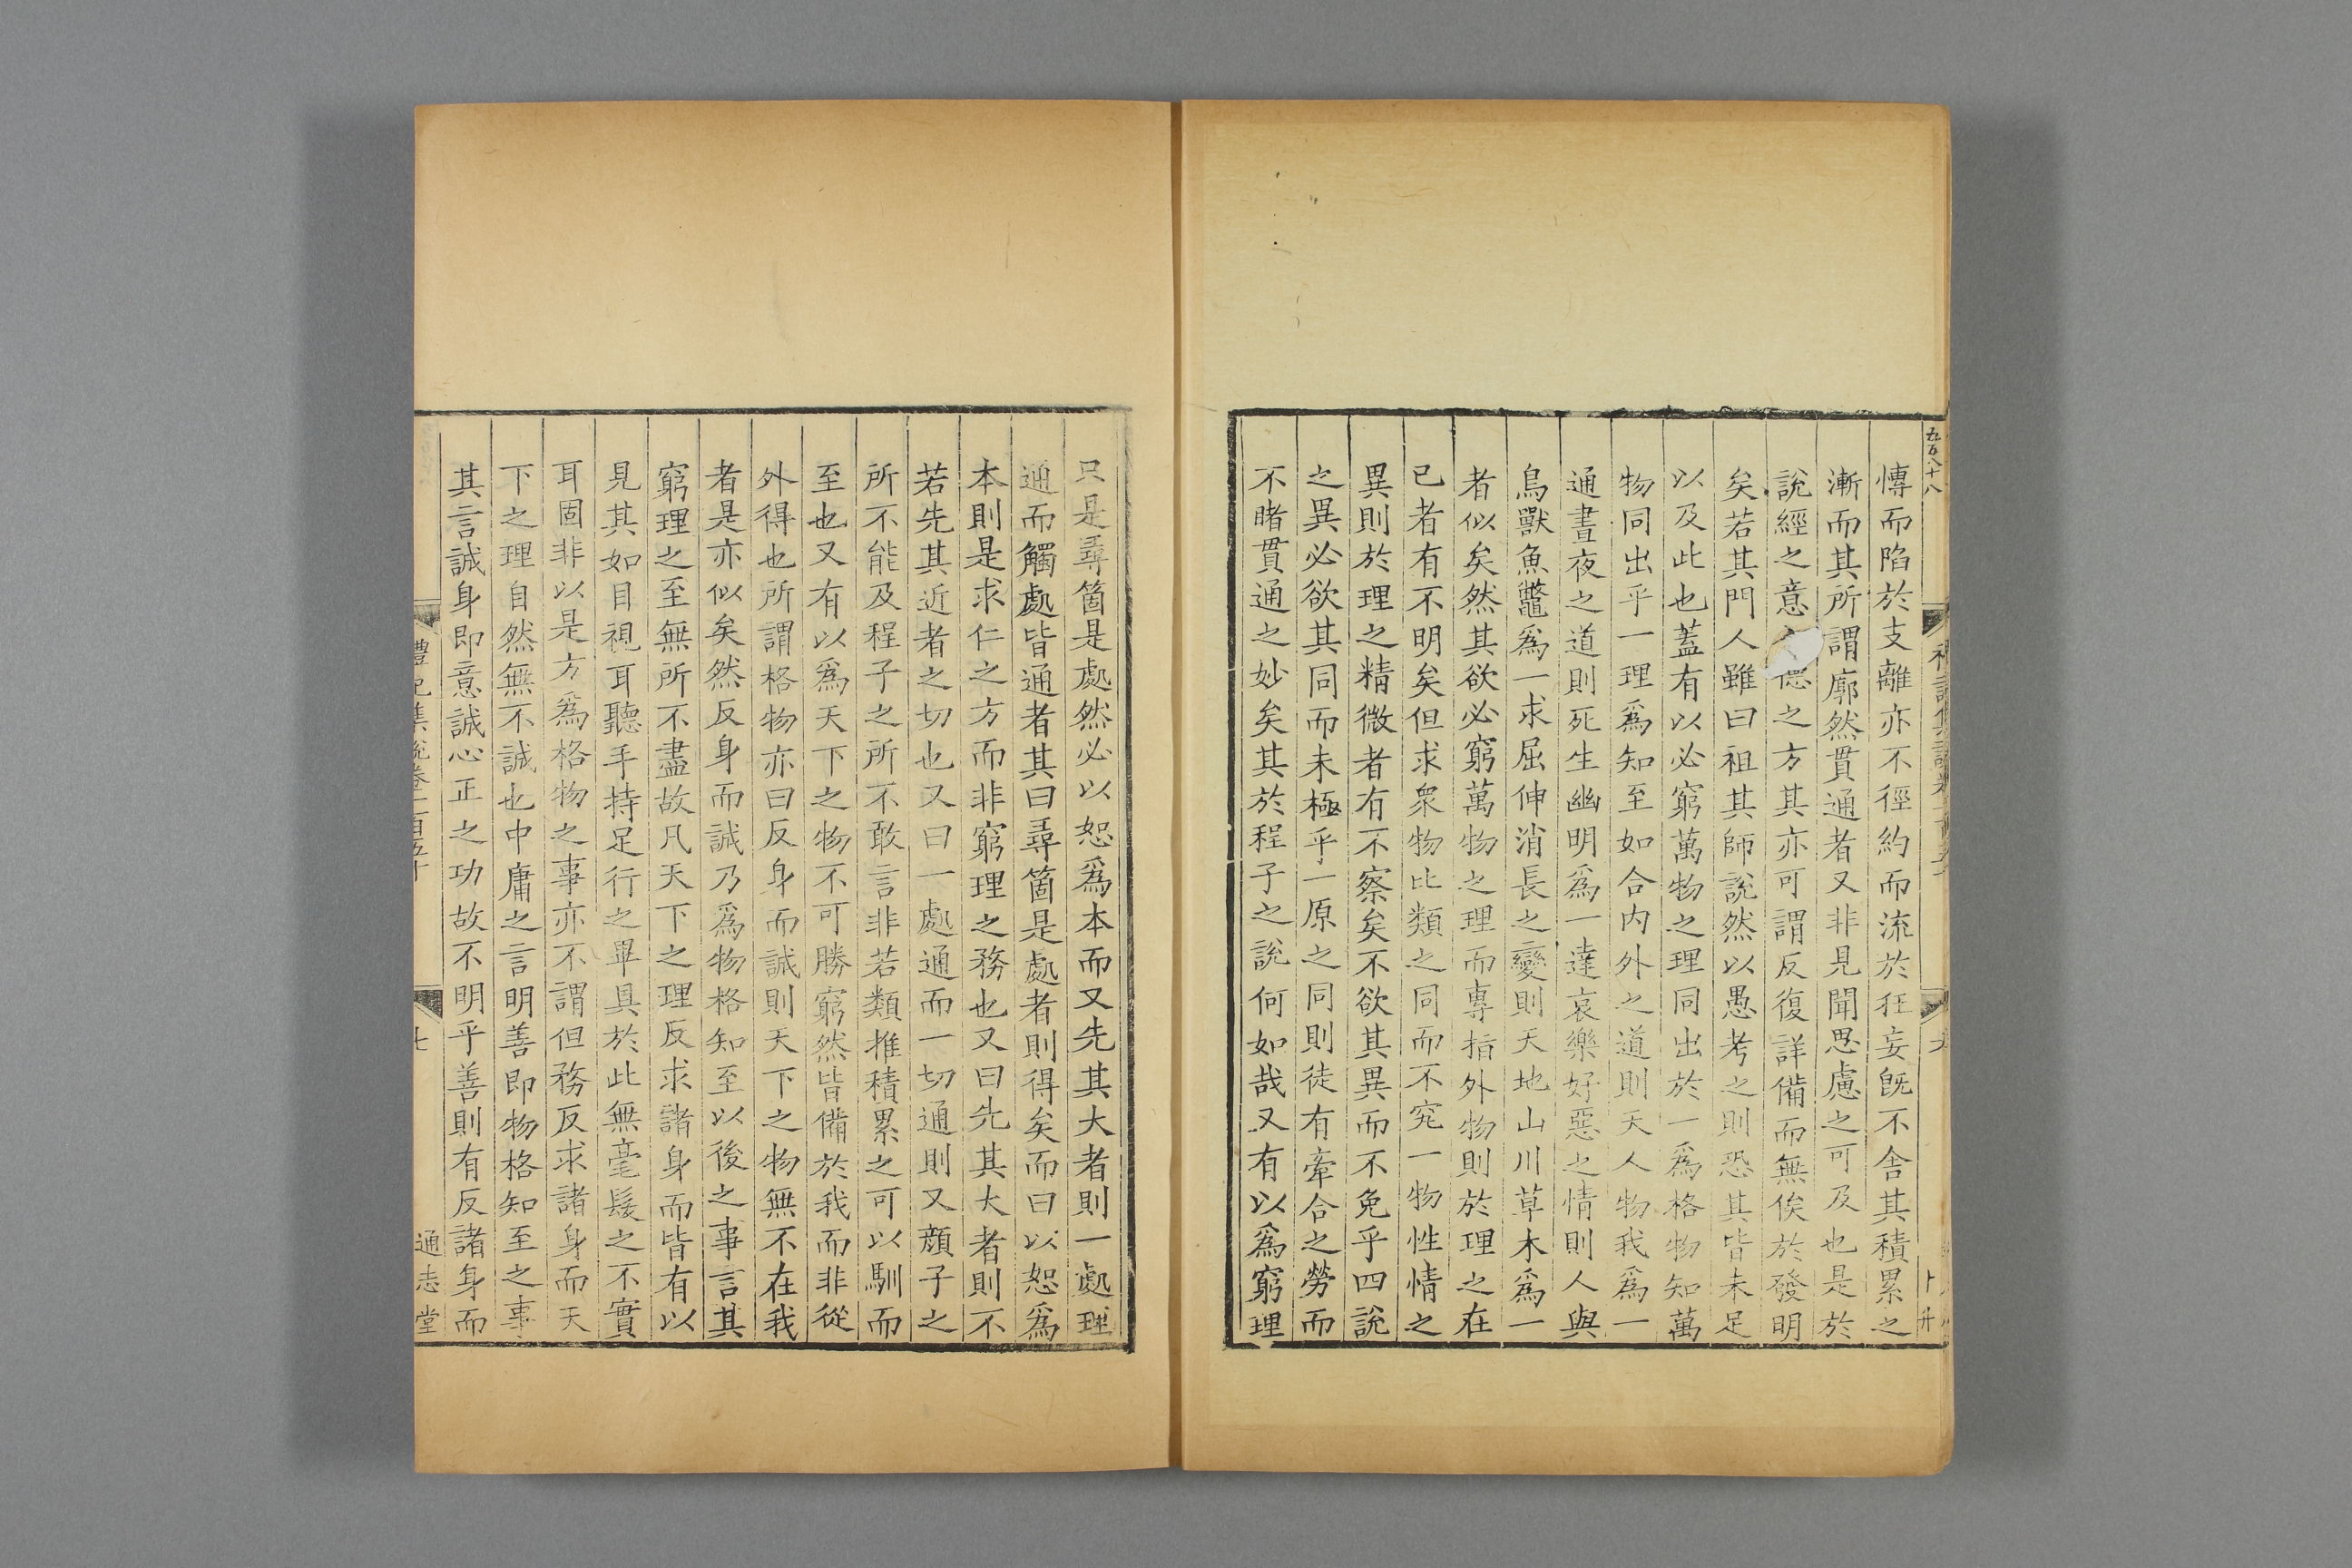 五百八十八
慱而陷於支離亦不徑約而流於狂妄旣不舍其積累之
漸而其所謂廓然貫通者又非見聞思慮之可及也是於
說經之意德之方其亦可謂反復詳備而無俟於發明
矣若其門人雖曰祖其師說然以愚考之則恐其皆未足
以及此也蓋有以必窮萬物之理同出於一爲格物知萬
物同出乎一理爲知至如合內外之道則天人物我爲一
通晝夜之道則死生幽明爲一達哀樂好惡之情則人與
鳥獸魚鼈爲一求屈伸消長之變則天地山川草木爲一
者似矣然其欲必窮萬物之理而專指外物則於理之在
已者有不明矣但求衆物比類之同而不究一物性情之
異則於理之精微者有不察矣不欲其異而不免乎四說
之異必欲其同而未極乎一原之同則徒有牽合之勞而
不睹貫通之妙矣其於程子之說何如哉又有以爲窮理
只是尋箇是處然必以恕爲本而又先其大者則一處理
通而觸處皆通者其曰尋箇是處者則得矣而曰以恕爲
本則是求仁之方而非窮理之務也又曰先其大者則不
若先其近者之切也又曰一處通而一切通則又顔子之
所不能及程子之所不敢言非若類推積累之可以馴而
至也又有以爲天下之物不可勝窮然皆備於我而非從
外得也所謂格物亦曰反身而誠則天下之物無不在我
者是亦似矣然反身而誠乃爲物格知至以後之事言其
窮理之至無所不盡故凡天下之理反求諸身而皆有以
見其如目視耳聽手持足行之畢具於此無毫髮之不實
耳固非以是方爲格物之事亦不謂但務反求諸身而天
下之理自然無不誠也中庸之言明善即物格知至之事
其言誠身即意誠心正之功故不明乎善則有反諸身而
禮記集說卷一百五十
七
通志堂